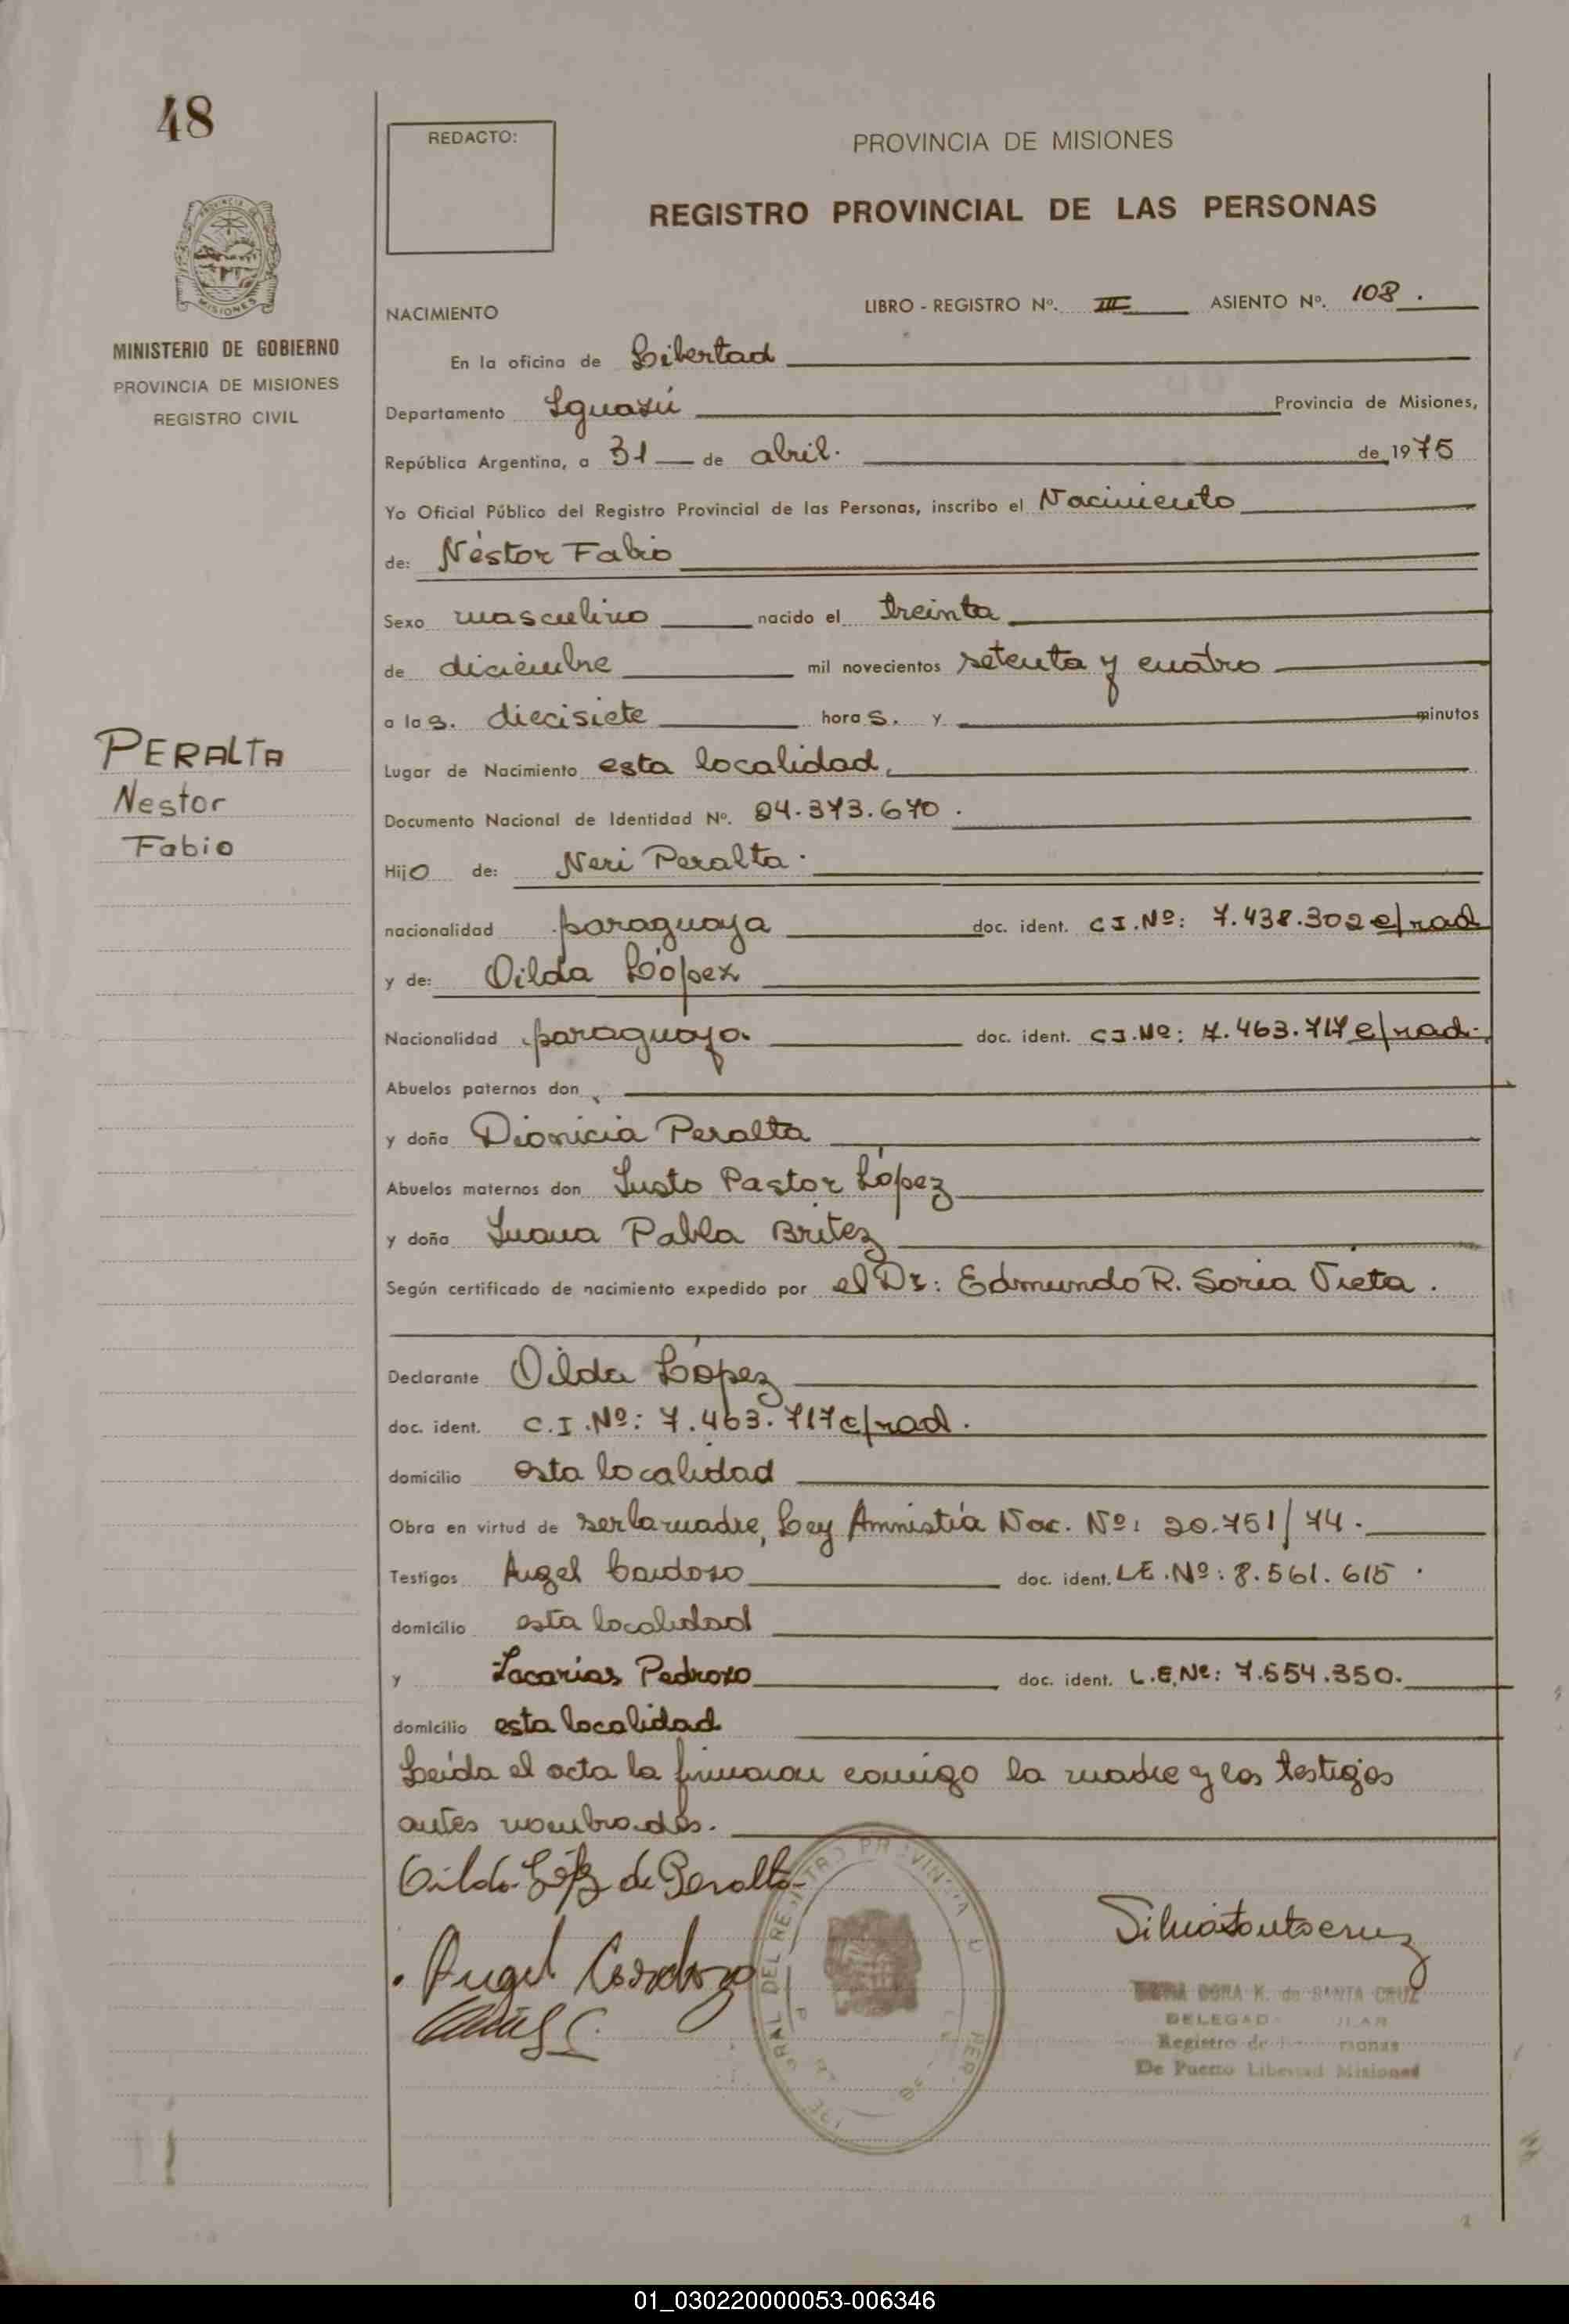 48
PROVINCIA DE
MISIONES
MINISTERIO DE GOBIERNO
PROVINCIA DE MISIONES
REGISTRO CIVIL
PERALTA
Nestor
Fabio
REDACTO:
PROVINCIA DE MISIONES
REGISTRO PROVINCIAL DE LAS PERSONAS
NACIMIENTO LIBRO - REGISTRO Nº. III ASIENTO Nº. 108.
En la oficina de Libertad
Departamento Iguazú Provincia de Misiones,
República Argentina, a 31 de abril. de 1975
Yo Oficial Público del Registro Provincial de las Personas, inscribo el Nacimiento
de: Néstor Fabio
Sexo masculino nacido el treinta
de diciembre mil novecientos setenta y cuatro
a las. diecisiete horas. y minutos
Lugar de Nacimiento esta localidad,
Documento Nacional de Identidad Nº. 24.373.670.
Hijo de: Neri Peralta.
nacionalidad paraguaya doc. ident. C I. Nº: 7.438.302 c/rad
y de: Oilda López
Nacionalidad paraguaya. doc. ident. C I. Nº: 7.463.717 c/rad.
Abuelos paternos don
y doña Dionicia Peralta
Abuelos maternos don Justo Pastor López
y doña Juana Pabla Britez
Según certificado de nacimiento expedido por el Dr: Edmundo R. Soria Vieta.
Declarante Oilda López
doc. ident. C. I. Nº: 7.463.717 c/rad.
domicilio esta localidad
Obra en virtud de ser la madre, Ley Amnistía Nac. Nº: 20.751/74.
Testigos Angel Cardozo doc. ident. L E. Nº: 8.561.615.
domicilio esta localidad
y Zacarias Pedrozo doc. ident. L. E. Nº: 7.554.350.
domicilio esta localidad
Leída el acta la firmaron conmigo la madre y los testigos
antes nombrados.
Oilda López de Peralta
Angel Cardozo
DORA K. de SANTA CRUZ
Registro de
De Puerto Libertad Misiones
01_030220000053-006346